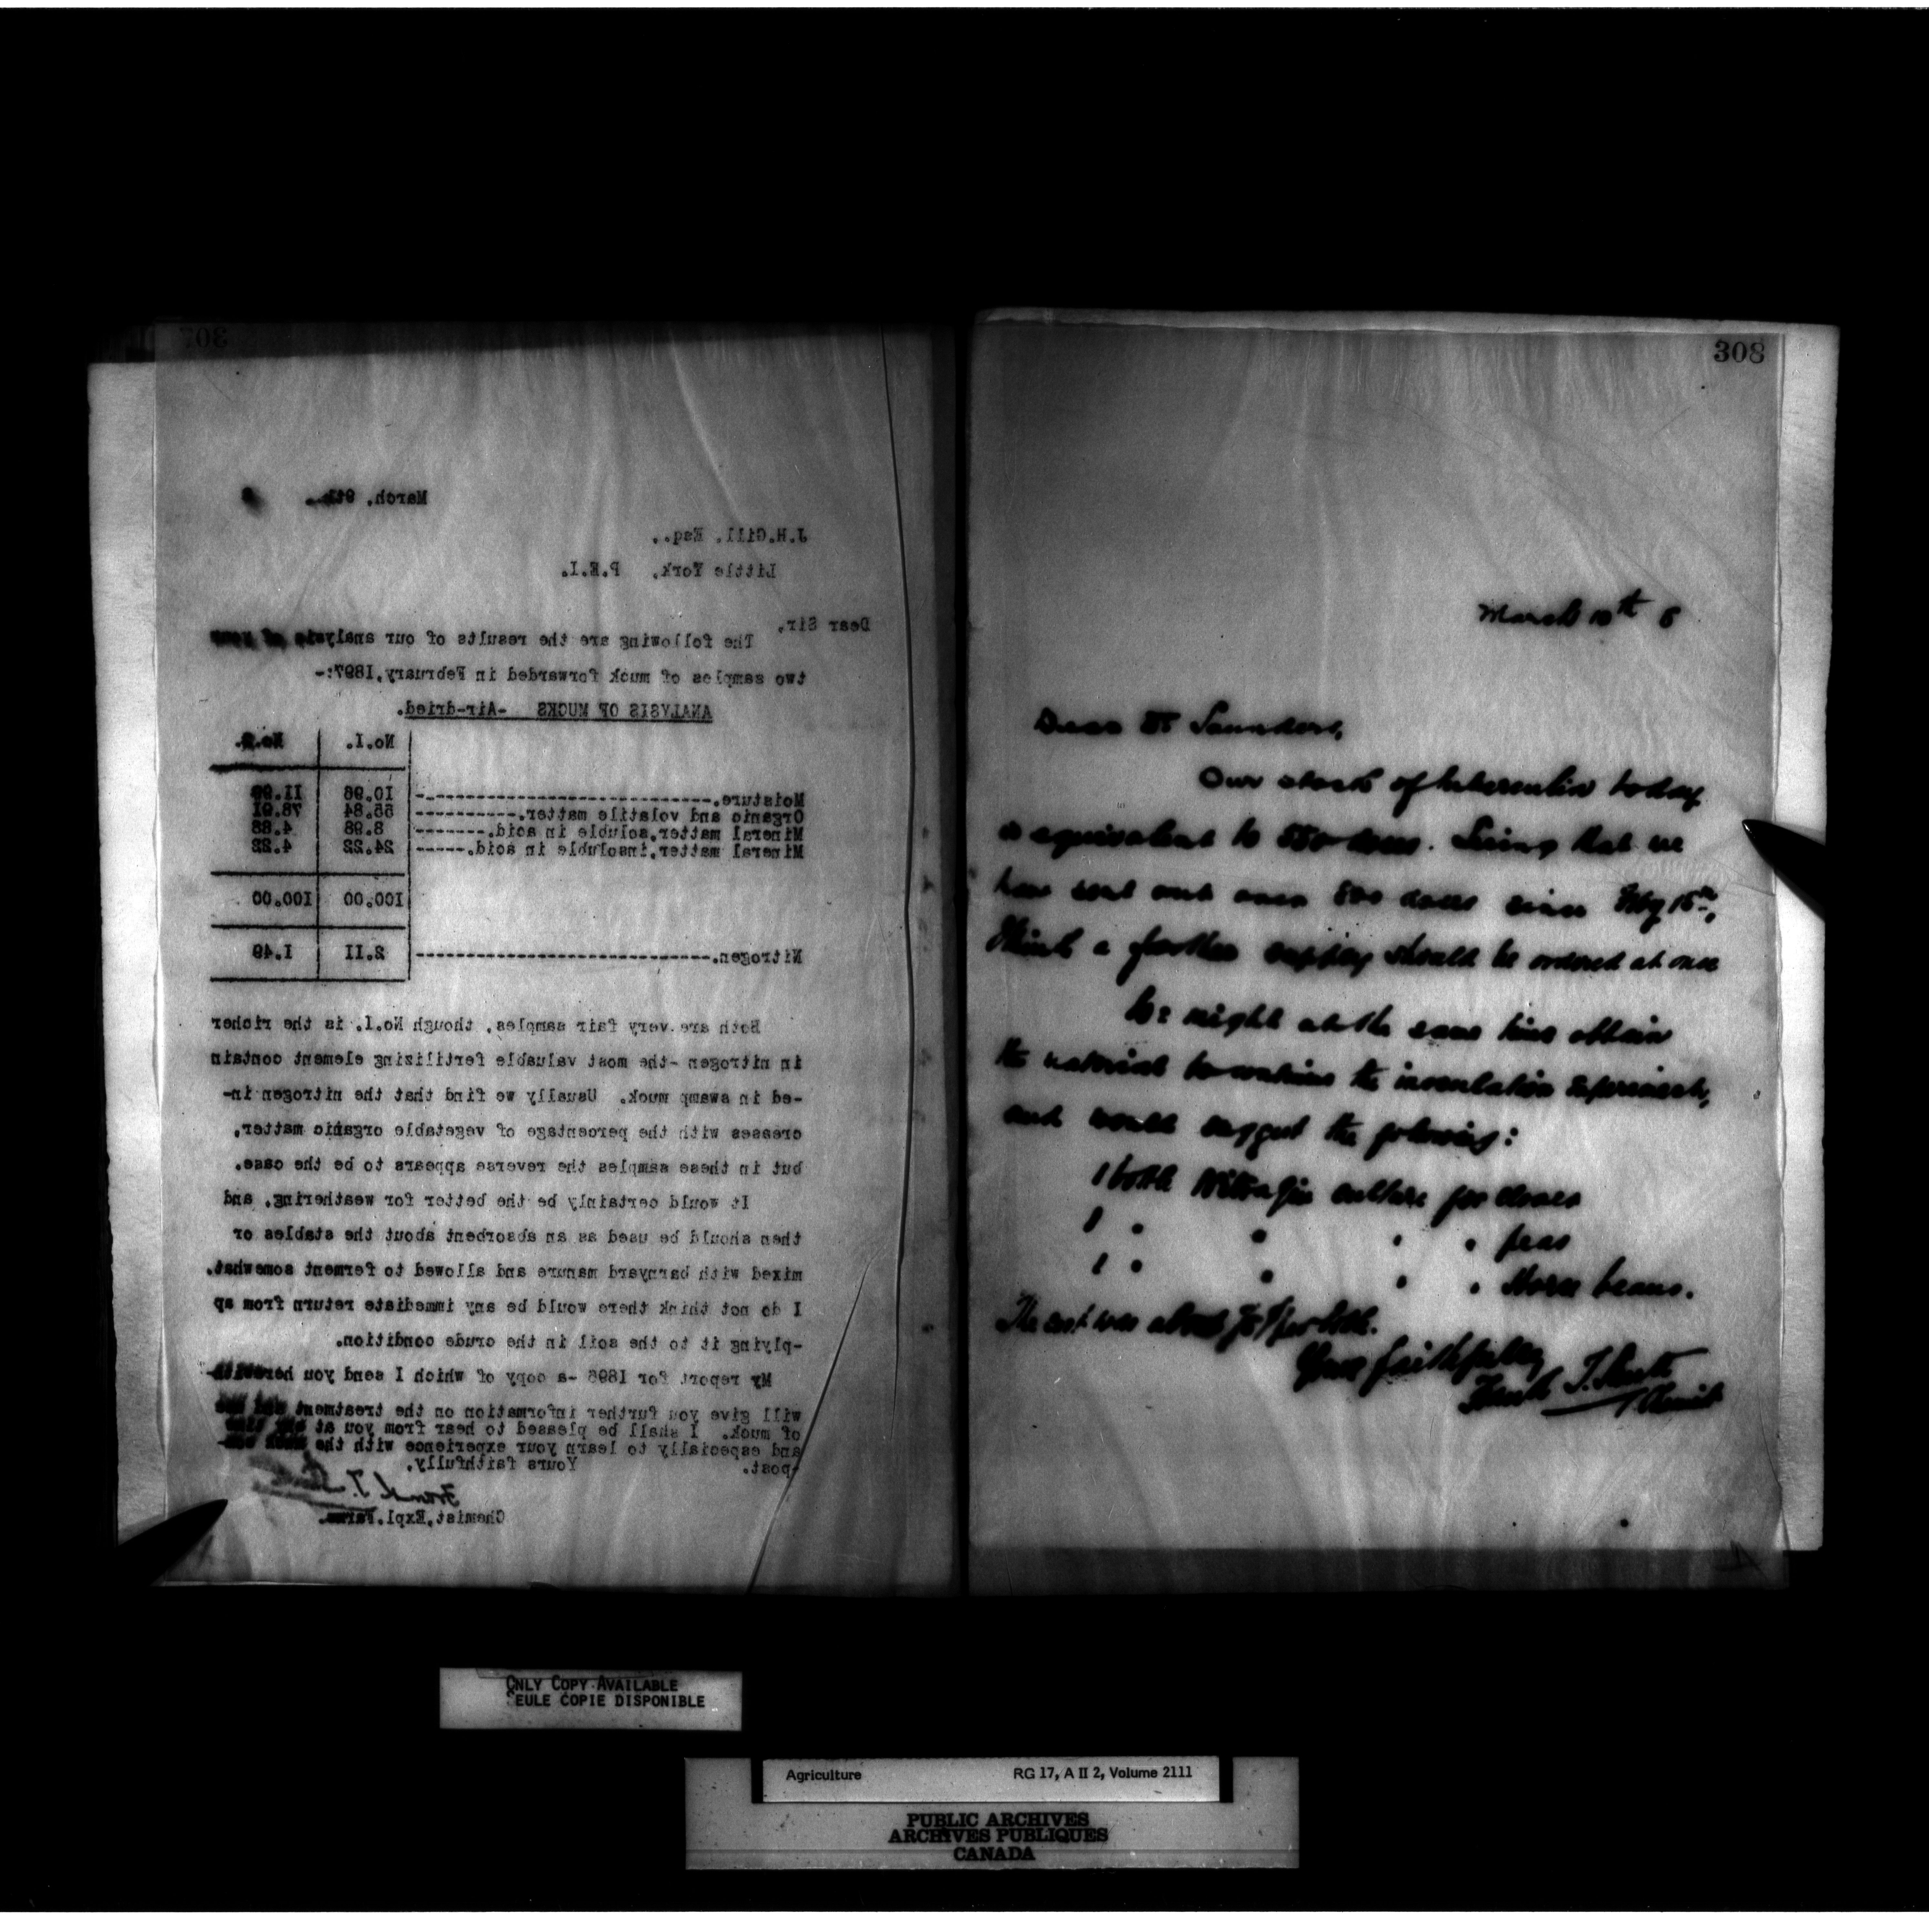 307
March, 9th, 8
J.H.Gill, Esq.,
Little York, P.E.I.
Dear Sir,
The following are the results of our analysis of your
two samples of muck forwarded in February,1897:-
ANALYSIS OF MUCKS -Air-dried.
No.I. No.2.
Moisture. 10.96 11.99
Organic and volatile matter. 55.84 78.91
Mineral matter,soluble in acid. 8.98 4.88
Mineral matter,insoluble in acid. 24.22 4.22
100.00 100.00
Nitrogen. 2.11 1.49
Both are very fair samples, though No.I. is the richer
in nitrogen -the most valuable fertilizing element contain
-ed in swamp muck. Usually we find that the nitrogen in-
creases with the percentage of vegetable organic matter,
but in these samples the reverse appears to be the case.
It would certainly be the better for weathering, and
then should be used as an absorbent about the stables or
mixed with barnyard manure and allowed to ferment somewhat.
I do not think there would be any immediate return from ap
-plying it to the soil in the crude condition.
My report for 1896 -a copy of which I send you herewith-
will give you further information on the treatment and use
of muck. I shall be pleased to hear from you at any time
and especially to learn your experience with the muck com-
-post. Yours faithfully,
Frank T. Shutt
Chemist,Expl.Farms.
308
March 10th 8
Dear Dr Saunders,
Our stock of tuberculin today
is equivalent to 550 doses. Seeing that we
have sent out over 800 doses since Feby 15th,
think a further supply should be ordered at once
We might at the same time obtain
the material to continue the inoculation experiments,
and would suggest the following:
1 bottle Nitragin culture for clover
1 " " " " peas
1 " " " " Horse beans.
The cost was about per bottle.
Yours faithfully
Frank T. Shutt
Chemist
ONLY COPY AVAILABLE
SEULE COPIE DISPONIBLE
Agriculture RG 17, A II 2, Volume 2111
PUBLIC ARCHIVES
ARCHIVES PUBLIQUES
CANADA